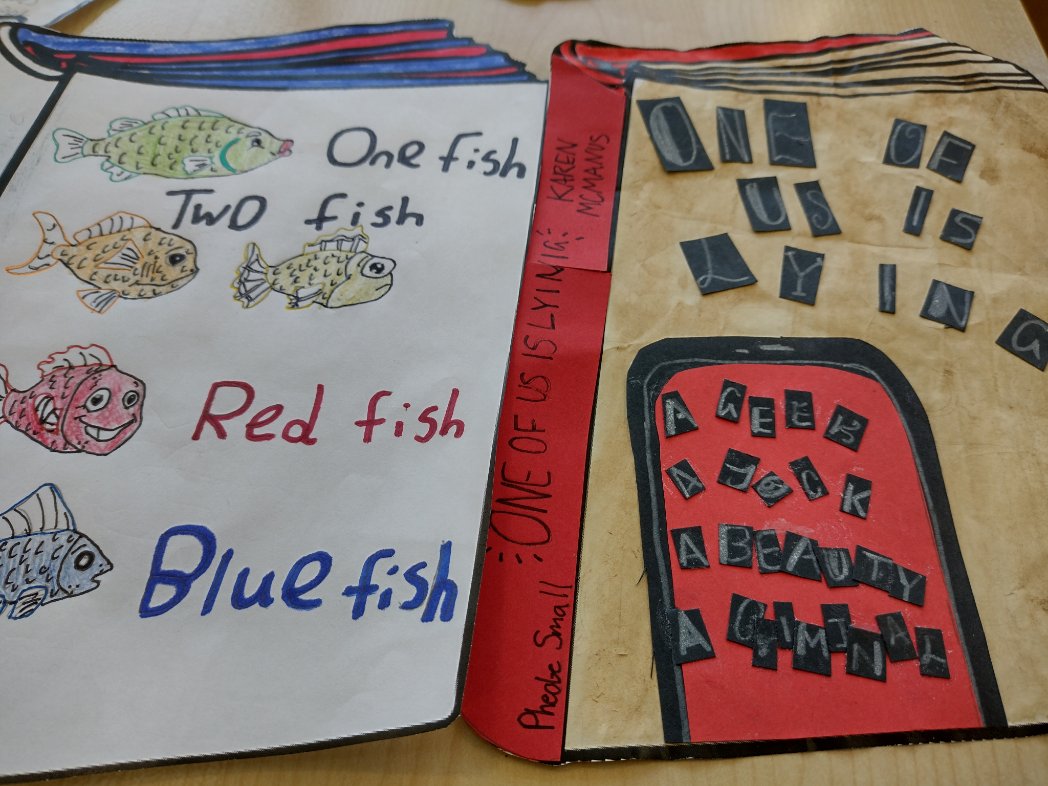 One fish
Two fish
Red fish
Blue fish
Pheobe Small
:ONE OF US IS LYING:
KAREN
MCMANUS
ONE OF
US IS
LYING
A GEEK
A JOCK
A BEAUTY
A CRIMINAL